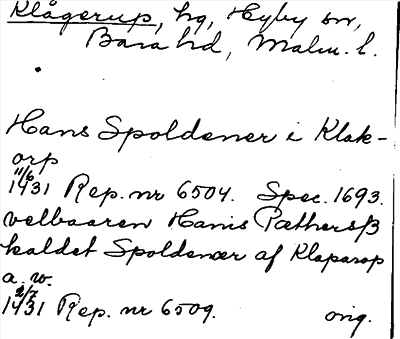 Klågerup, hg, Hyby sn,
Bara hd, Malm. l.
Hans Spoldener i Klak-
orp
11/6
1431 Rep. nr 6504. Spec. 1693.
velbaaren Hanis Pæthersß
kaldet Spoldener af Klaparop
a. w.
2/7
1431 Rep. nr 6509. orig.